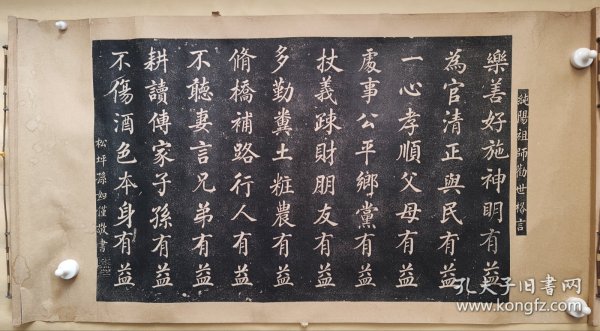 純陽祖師勸世格言
樂善好施神明有益
為官清正與民有益
一心孝順父母有益
處事公平鄉黨有益
杖義疎財朋友有益
多勤糞土粧農有益
脩橋補路行人有益
不聽妻言兄弟有益
耕讀傳家子孫有益
不傷酒色本身有益
松坪孫如僅敬書
孔夫子旧书网
kongfz.com